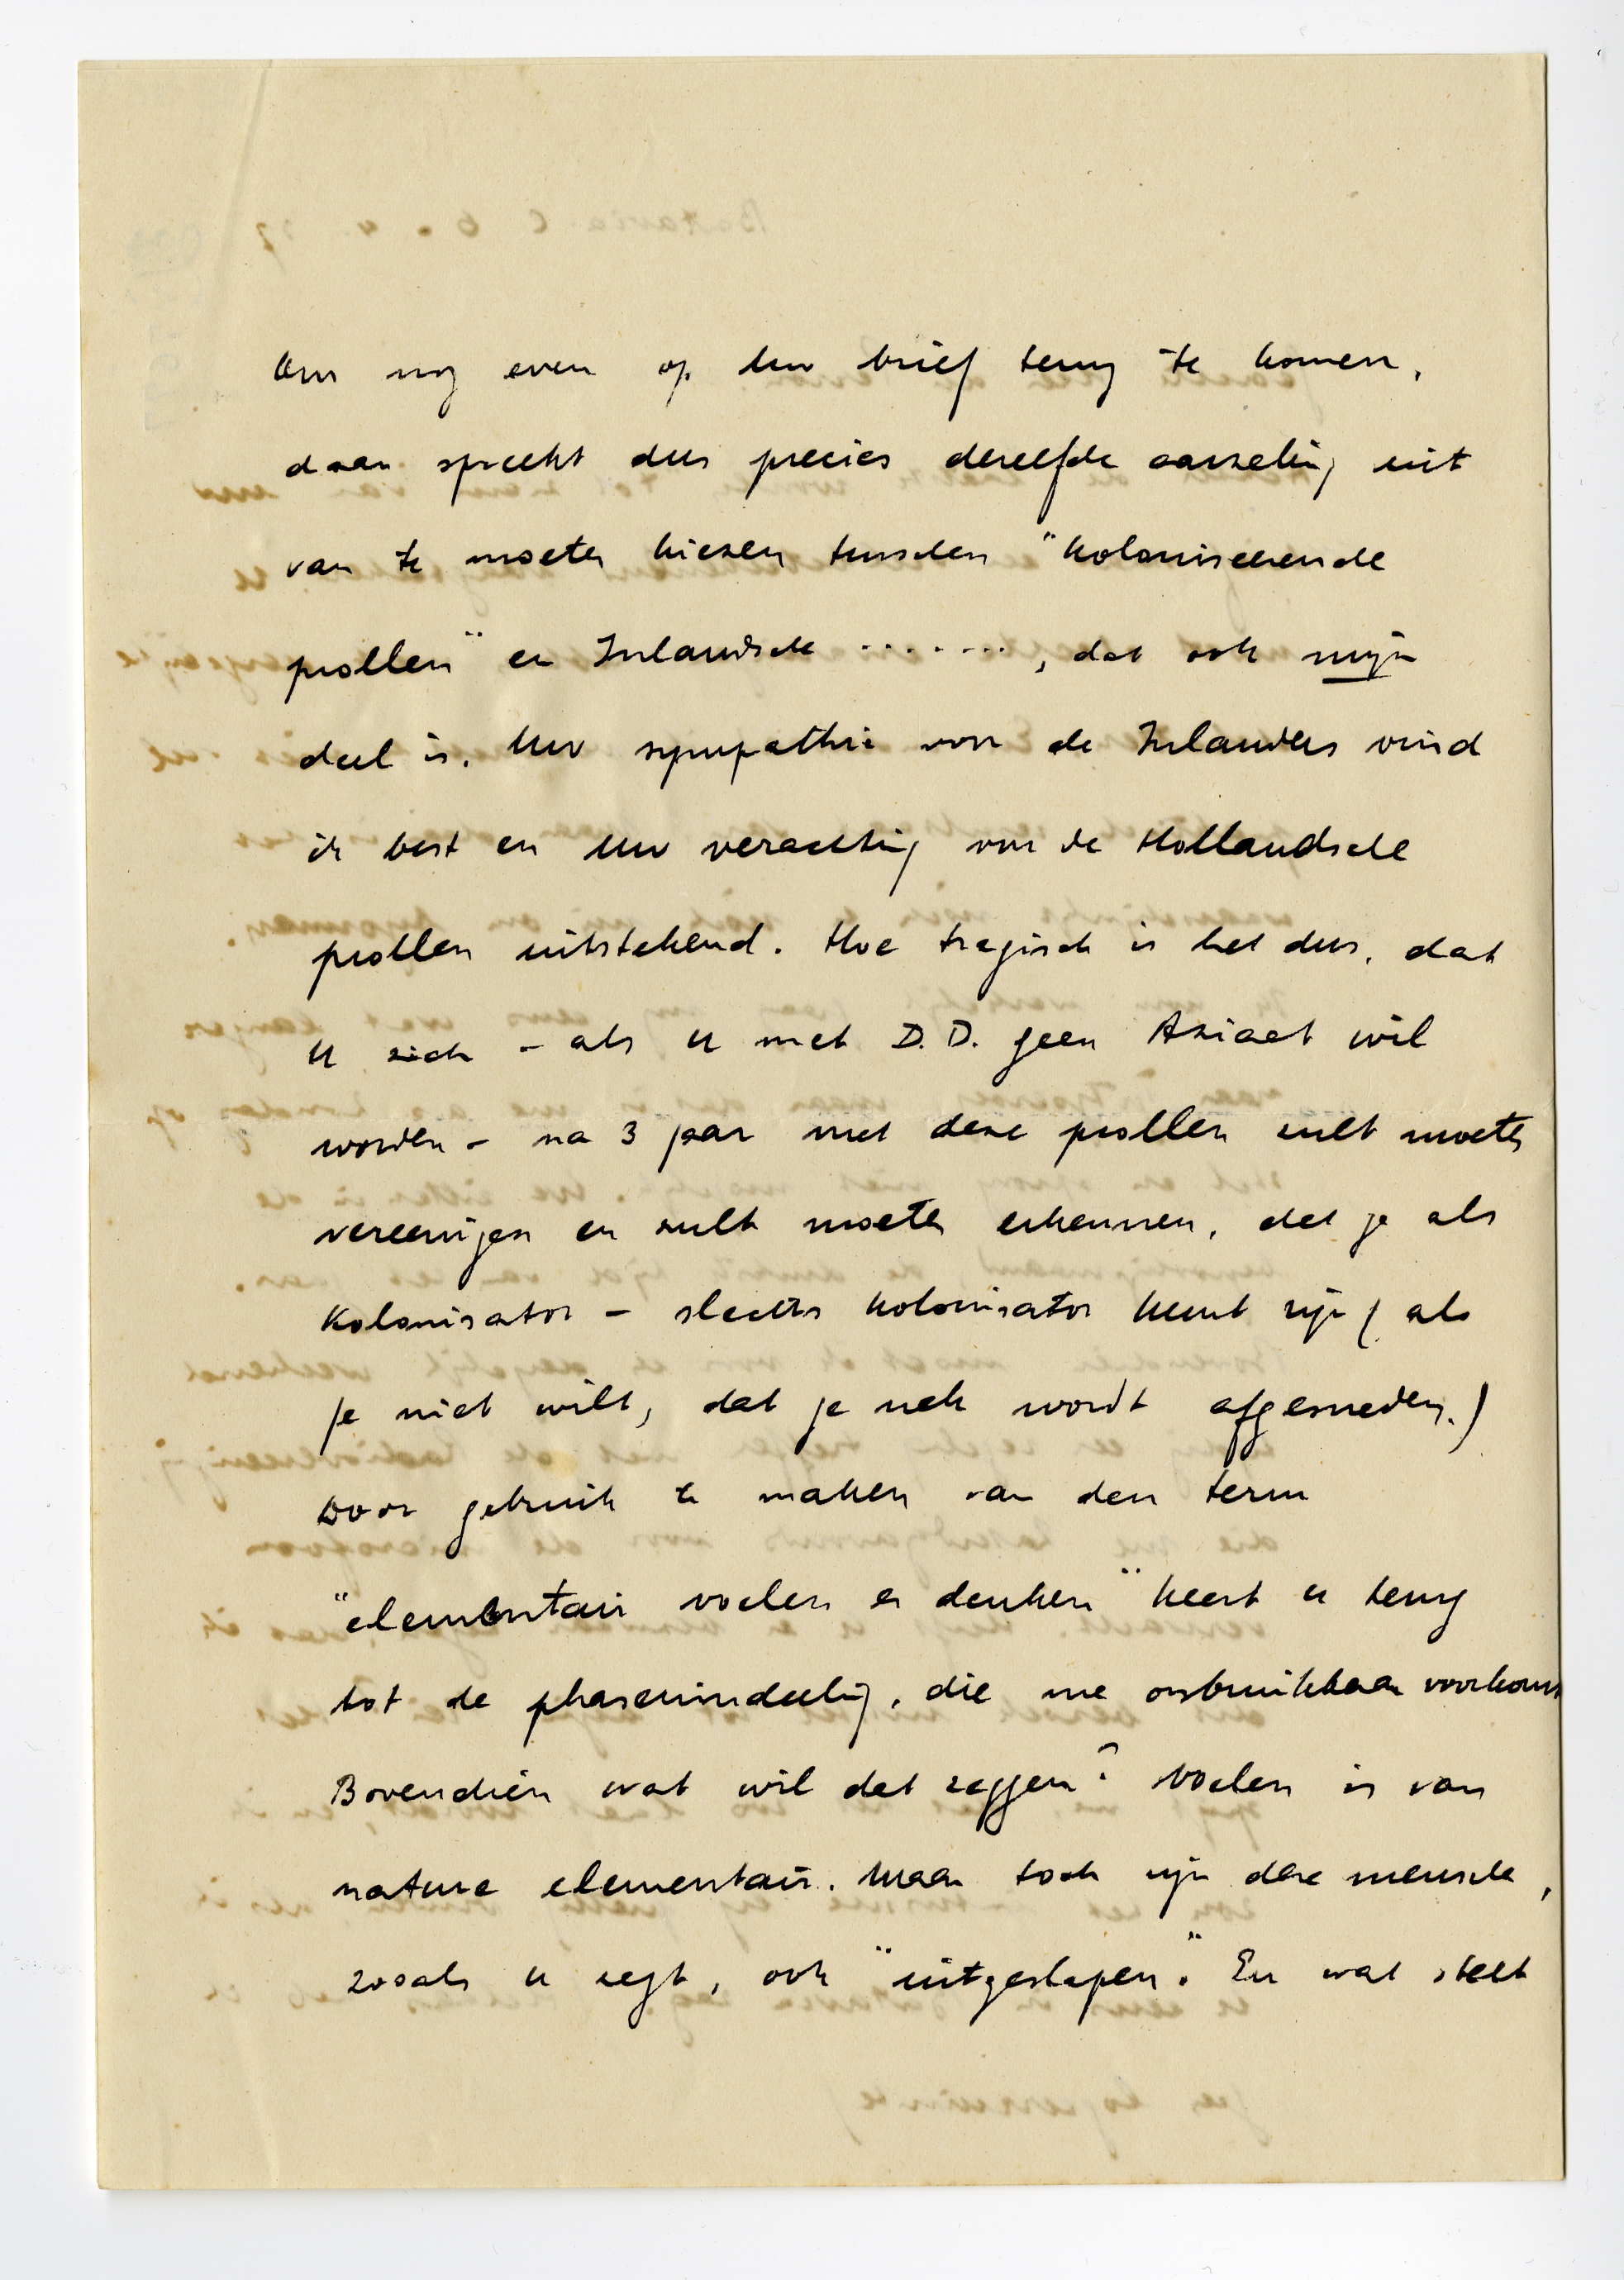 Om nog even op Uw brief terug te komen,
daar spreekt dus precies dezelfde aarzeling uit
van te moeten kiezen tusschen "koloniseerende
prollen" en Inlandsche ......., dat ook mijn
deel is. Uw sympathie voor de Inlanders vind
ik best en Uw verachting voor de Hollandsche
prollen uitstekend. Hoe tragisch is het dus, dat
U zich - als U met D.D. geen Aziaat wil
worden - na 3 jaar met deze prollen zult moeten
vereenigen en zult moeten erkennen, dat je als
kolonisator - slechts kolonisator kunt zijn (als
je niet wilt, dat je nek wordt afgesneden.)
Door gebruik te maken van den term
"elementair voelen en denken" keert u terug
tot de phasenindeeling, die me onbruikbaar voorkomt
Bovendien wat wil dat zeggen? Voelen is van
nature elementair. Maar toch zijn deze mensche,
zooals u zegt, ook "uitgeslapen". En wat stelt